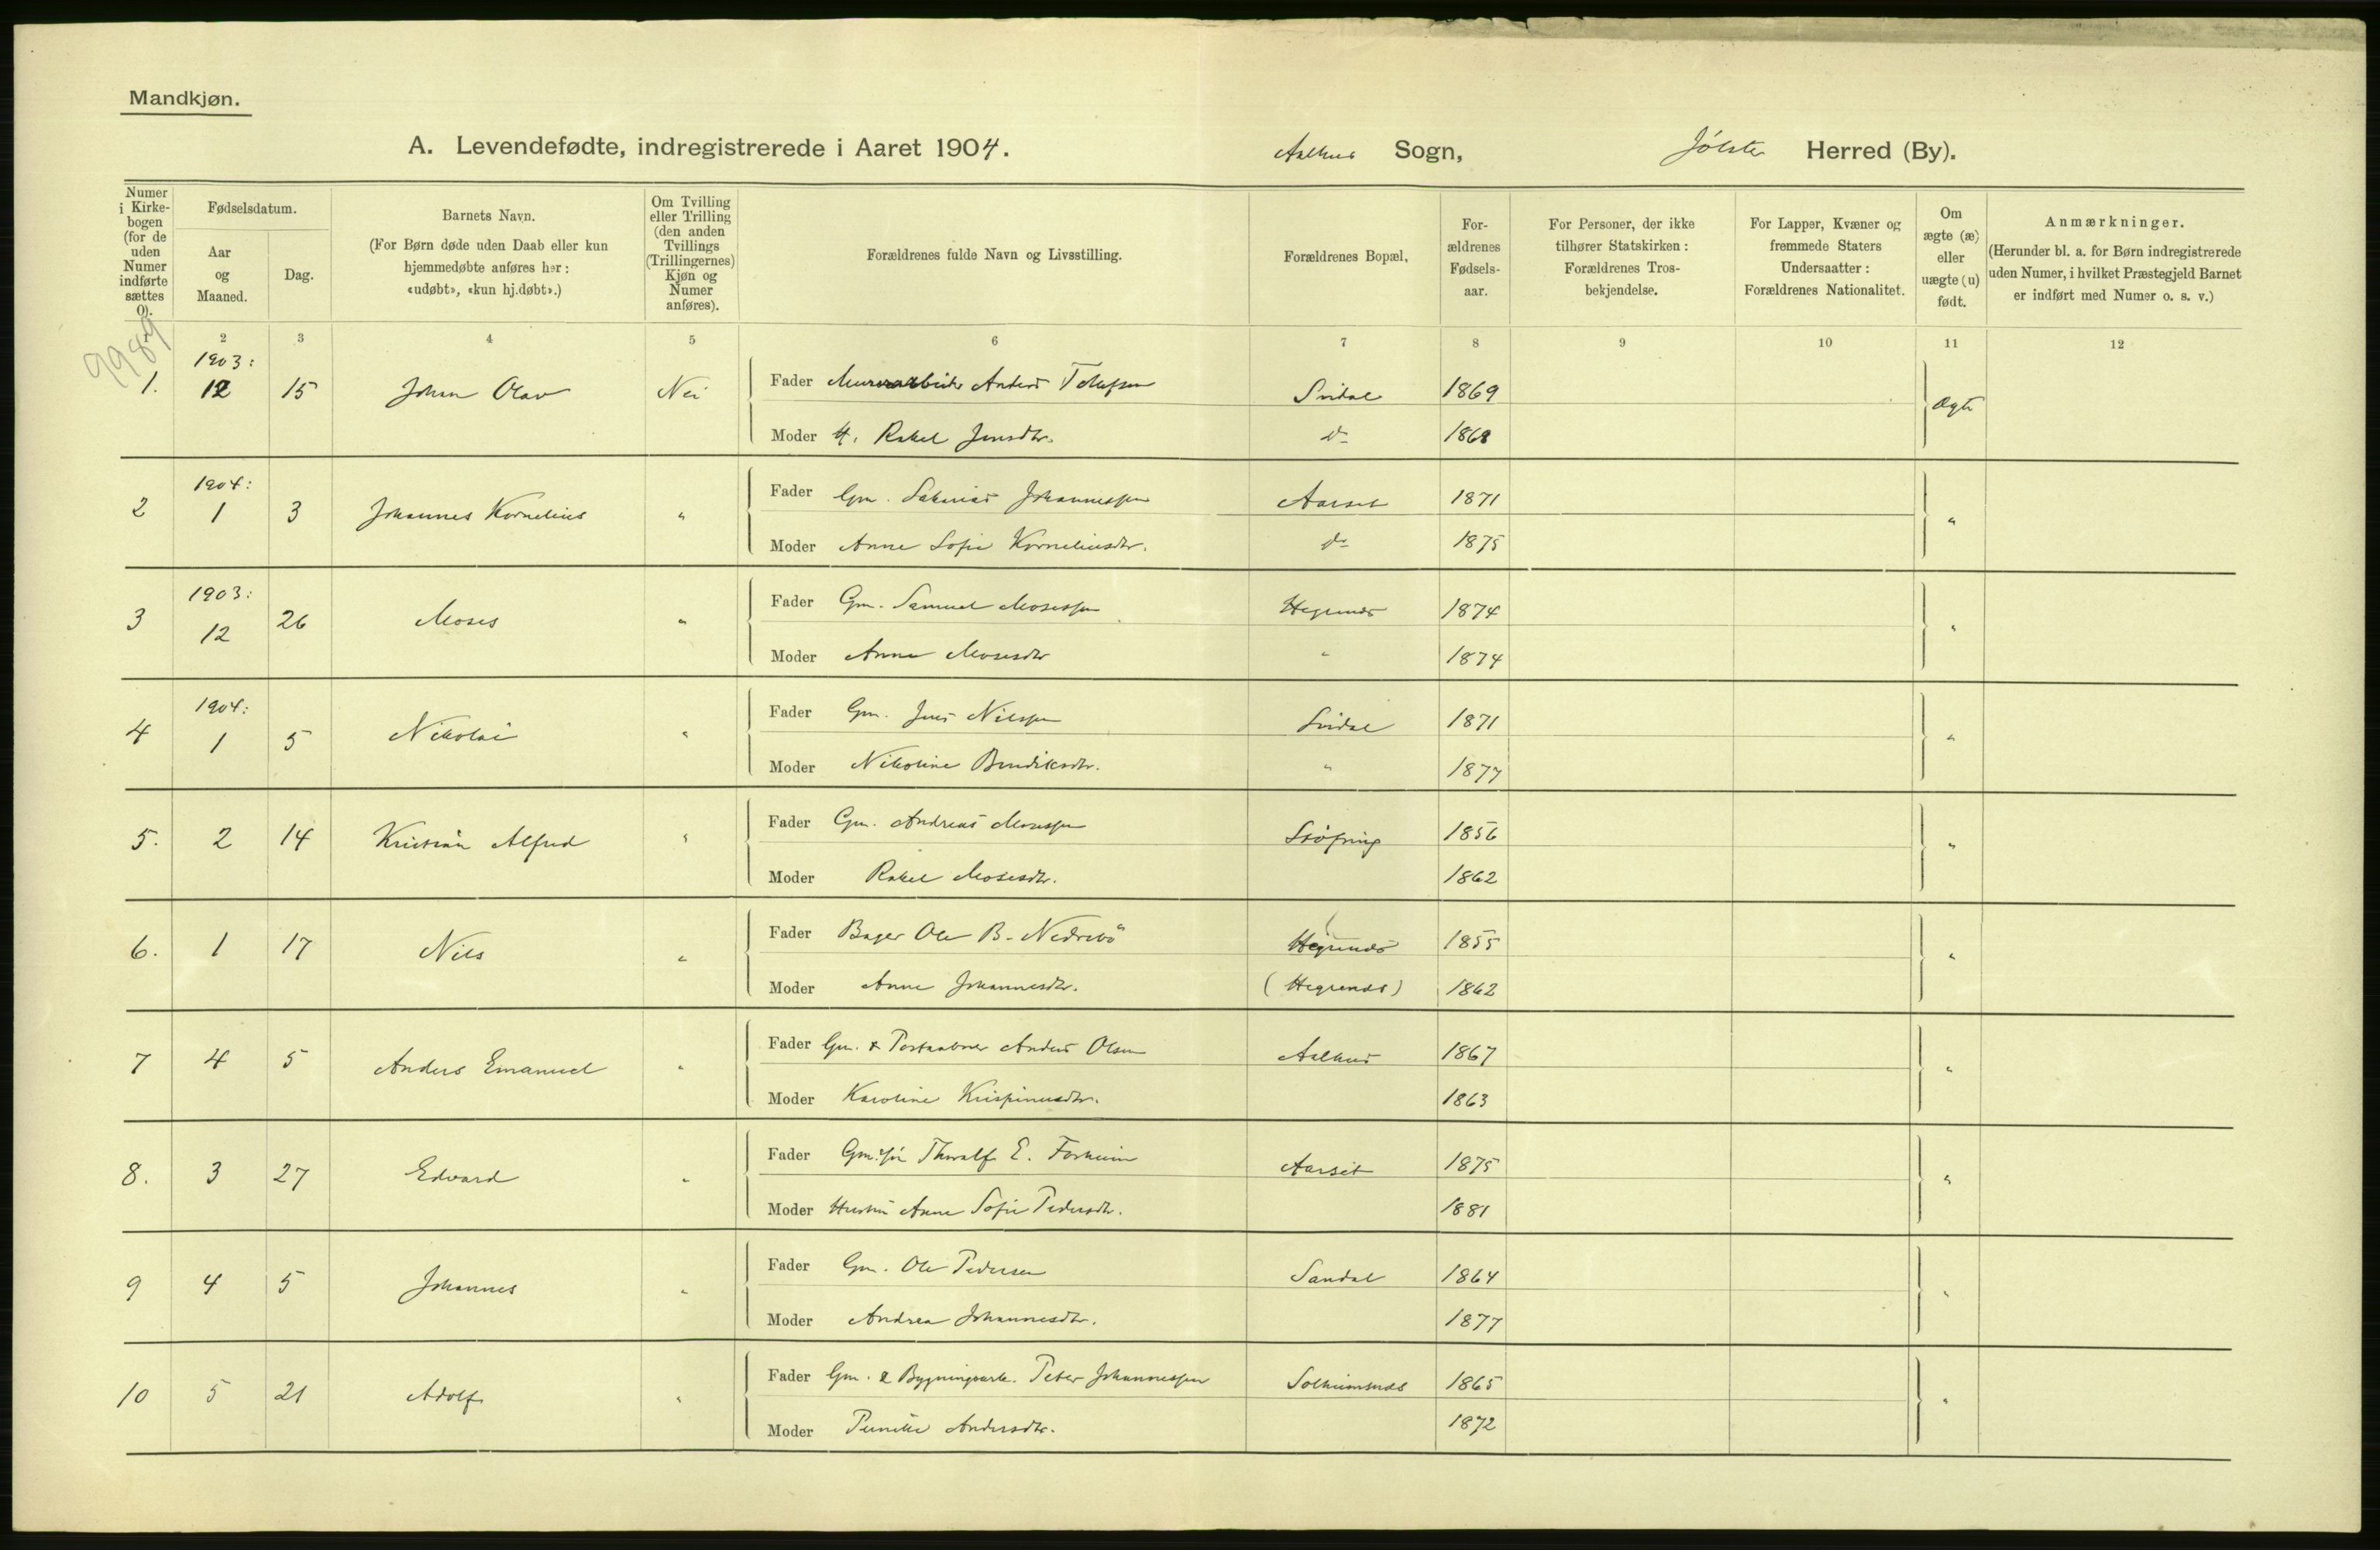 Mandkjøn.
A. Levendefødte, indregistrerede i Aaret 1904. Aalhus Sogn, Jølster Herred (By).
Numer i Kirkebogen (for de uden Numer indførte sættes 0).
Fødselsdatum.
Aar og Maaned.
Dag.
Barnets Navn.
(For Børn døde uden Daab eller kun hjemmedøbte anføres her: «udøbt», «kun hj.døbt».)
Om Tvilling eller Trilling (den anden Tvillings (Trillingernes) Kjøn og Numer anføres).
Forældrenes fulde Navn og Livsstilling.
Forældrenes Bopæl,
Forældrenes Fødselsaar.
For Personer, der ikke tilhører Statskirken: Forældrenes Trosbekjendelse.
For Lapper, Kvæner og fremmede Staters Undersaatter: Forældrenes Nationalitet.
Om ægte (æ) eller uægte (u) født.
Anmærkninger.
(Herunder bl. a. for Børn indregistrerede uden Numer, i hvilket Præstegjeld Barnet er indført med Numer o. s. v.)
2 3 4 5 6 7 8 9 10 11 12
9989
1903:
1. 12 15 Johan Olav Nei Fader Anders 1869 Ægte
Moder H. Rakel Jensdtr. do 1868
1904:
2 1 3 Johannes Kornelius " Fader Gm. Sakarias Johannessen Aarset 1871 "
Moder Anne Sofie Korneliusdtr. do 1875
1903:
3 12 26 Moses " Fader Gm. Samuel Mosessen Hegrenes 1874 "
Moder Anne Mosesdtr " 1874
1904:
4 1 5 Nikolai " Fader Gm. Jens Nilssen 1871 "
Moder Nikoline Bendiksdtr. " 1877
5. 2 14 Kristian Alfred " Fader Gm. Andreas Mosessen 1856 "
Moder Rakel Mosesdtr. 1862
6. 1 17 Nils " Fader Bager Ole B. Nedrebö Hegrenes 1855 "
Moder Anne Johannesdtr. (Hegrenes) 1862
7 4 5 Anders Emanuel " Fader Gm. & Postaabner Anders Olsen Aalhus 1867 "
Moder Karoline Krispinusdtr. 1863
8. 3 27 Edvard " Fader Thoralf E. 1875 Aarset "
Moder Hustru Anne Sofie Pedersdtr. 1881
9 4 5 Johannes " Fader Gm. Ole Pedersen Sandal 1864 "
Moder Andrea Johannesdtr. 1877
10 5 21 Adolf " Fader Gm. & Bygningsarb. Peter Johannessen Solheimsnes 1865 "
Moder Andersdtr. 1872